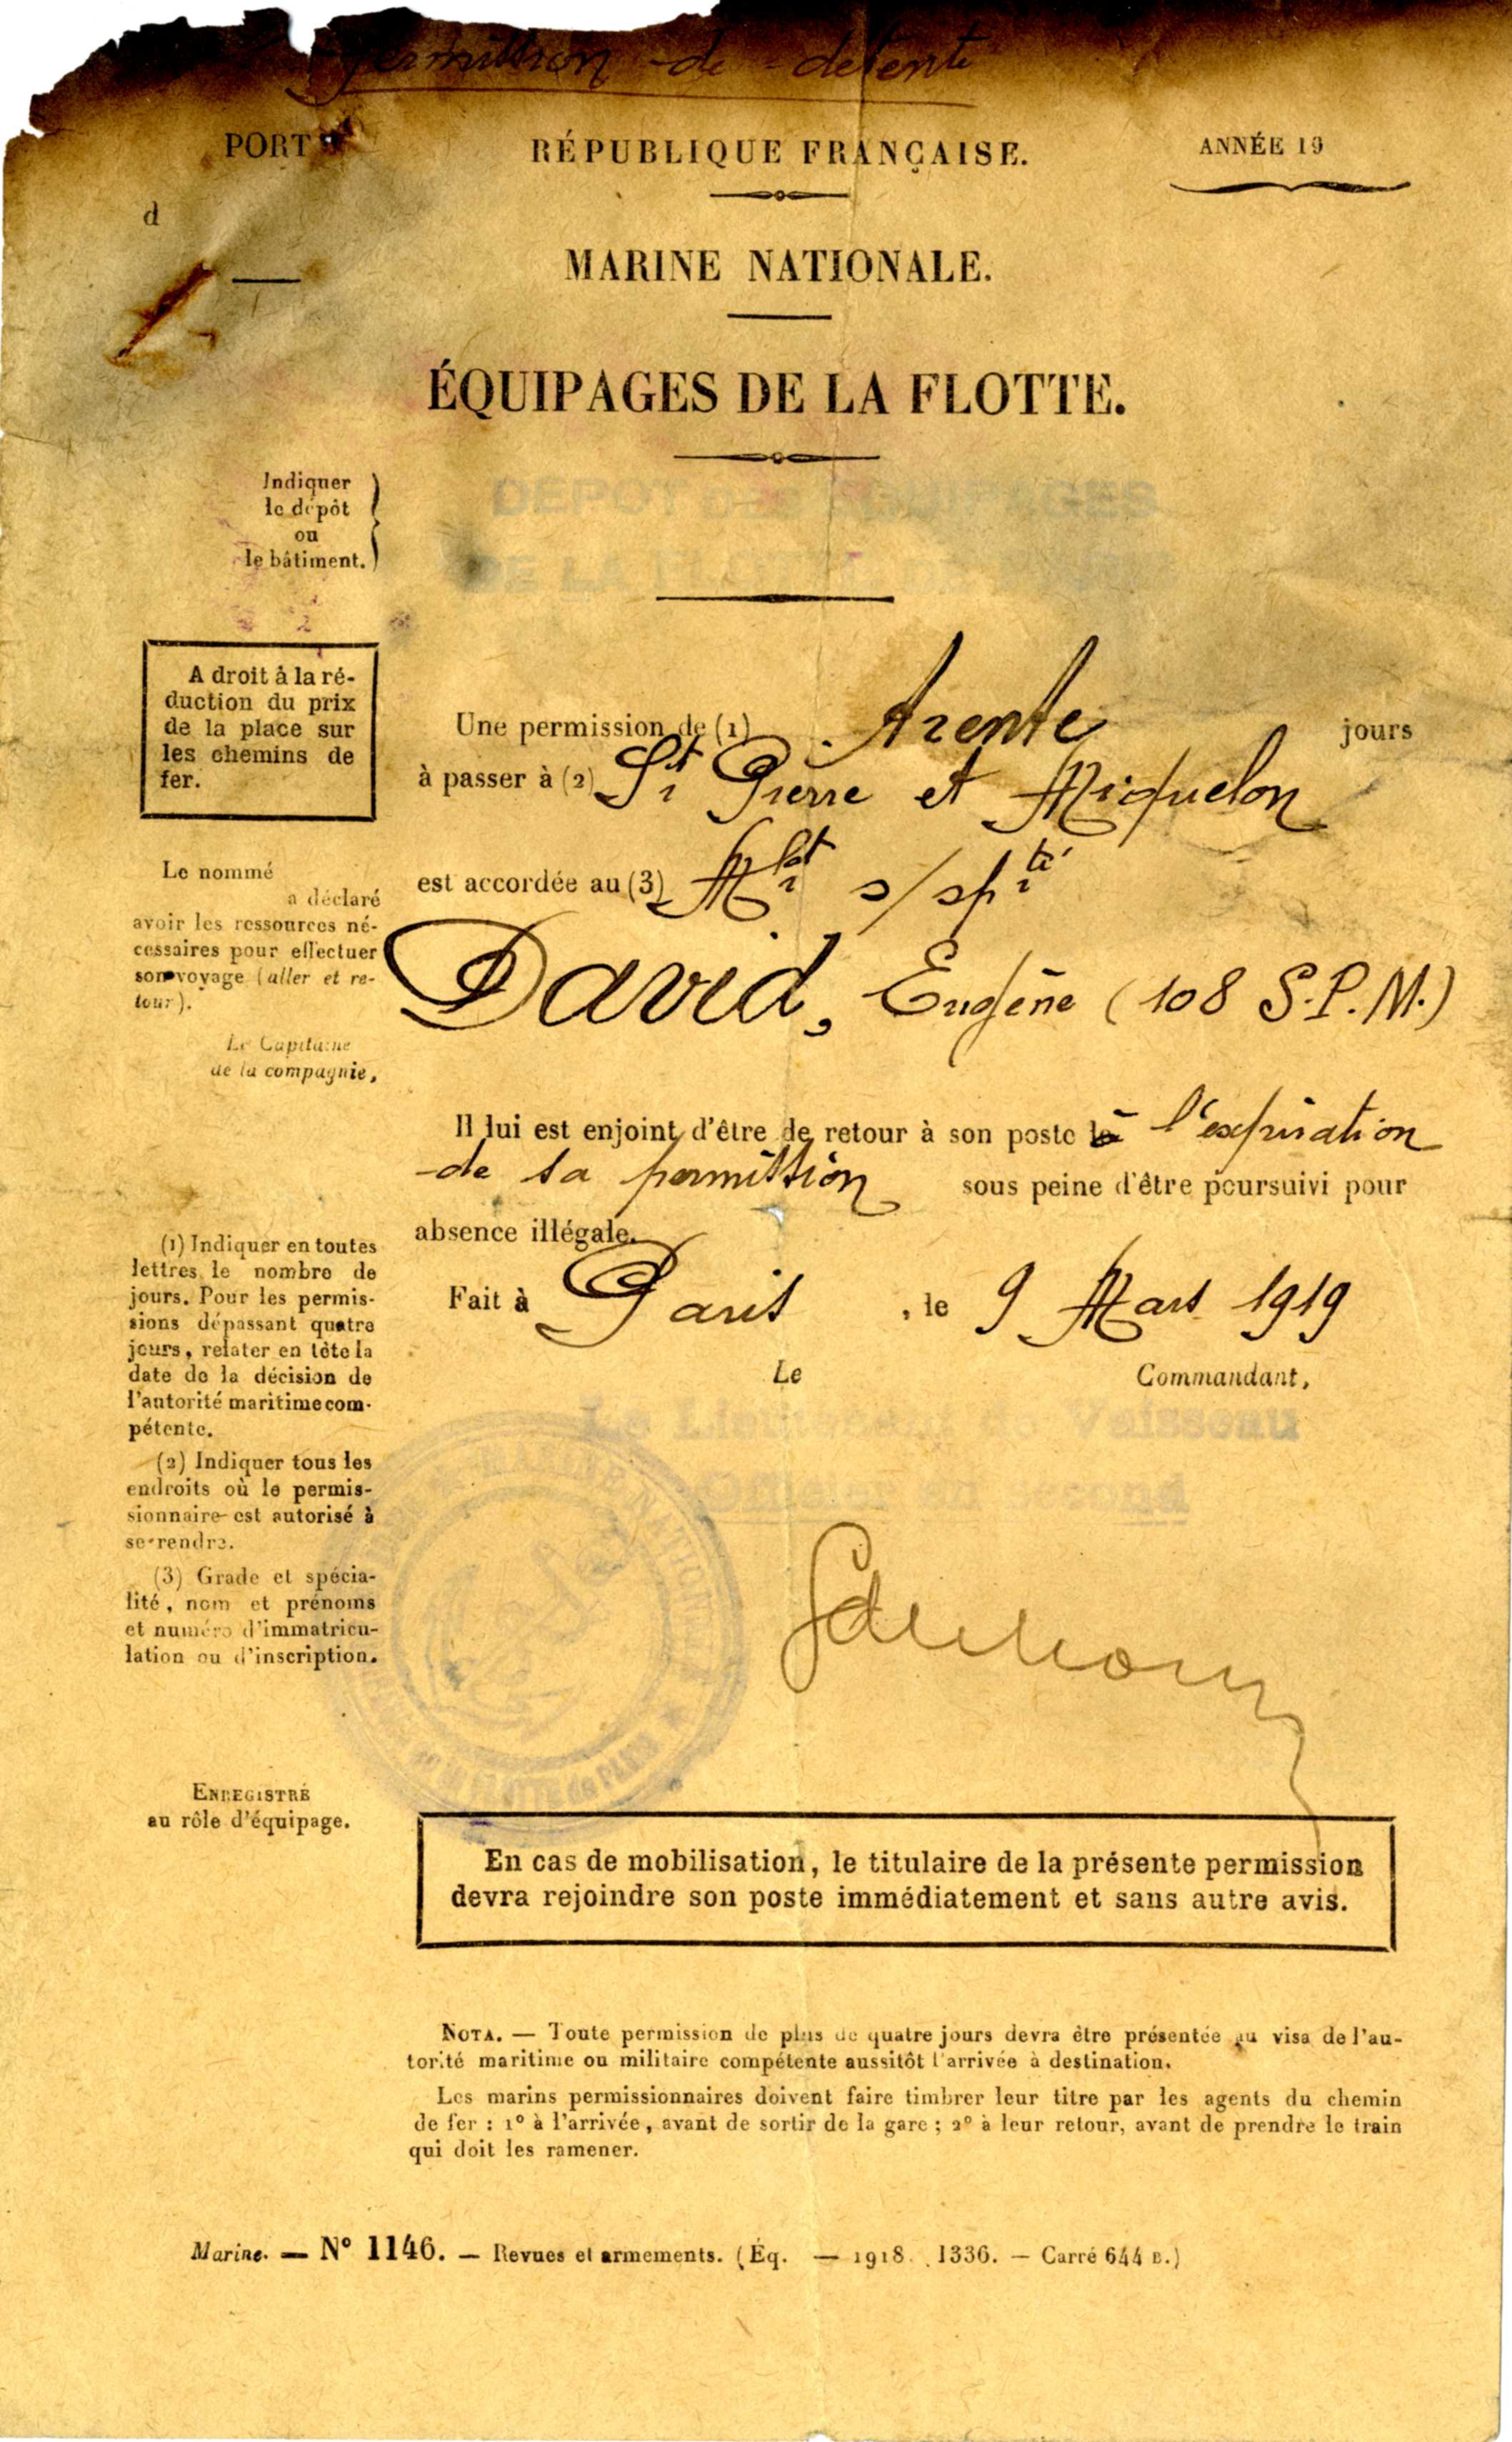 permission de détente
PORT
RÉPUBLIQUE FRANÇAISE.
ANNÉE 19
d
MARINE NATIONALE.
ÉQUIPAGES DE LA FLOTTE.
Indiquer
le dépôt
ou
le bâtiment.
DEPOT des EQUIPAGES
DE LA
A droit à la ré-
duction du prix
de la place sur
les chemins de
fer.
Une permission de (1) trente jours
à passer à (2) St Pierre et Miquelon
est accordée au (3) Mlot s/spté
David, Eugène (108 S.P.M.)
Le nommé
a déclaré
avoir les ressources né-
cessaires pour effectuer
son voyage (aller et re-
tour).
Le Capitaine
de la compagnie,
Il lui est enjoint d'être de retour à son poste à l'expiration
de sa permission sous peine d'être poursuivi pour
absence illégale.
Fait à Paris, le 9 Mars 1919
Le Commandant,
Le Lieutenant de Vaisseau
Officier en Second
(1) Indiquer en toutes
lettres le nombre de
jours. Pour les permis-
sions dépassant quatre
jours, relater en tête la
date de la décision de
l'autorité maritime com-
pétente.
(2) Indiquer tous les
endroits où le permis-
sionnaire est autorisé à
se rendre.
(3) Grade et spécia-
lité, nom et prénoms
et numéro d'immatricu-
lation ou d'inscription.
MARINE NATIONALE
de la FLOTTE de PARIS
ENREGISTRÉ
au rôle d'équipage.
En cas de mobilisation, le titulaire de la présente permission
devra rejoindre son poste immédiatement et sans autre avis.
NOTA. — Toute permission de plus de quatre jours devra être présentée au visa de l'au-
torité maritime ou militaire compétente aussitôt l'arrivée à destination.
Les marins permissionnaires doivent faire timbrer leur titre par les agents du chemin
de fer : 1° à l'arrivée, avant de sortir de la gare ; 2° à leur retour, avant de prendre le train
qui doit les ramener.
Marine. — N° 1146. — Revues et armements. (Éq. — 1918. 1336. — Carré 644 B.)